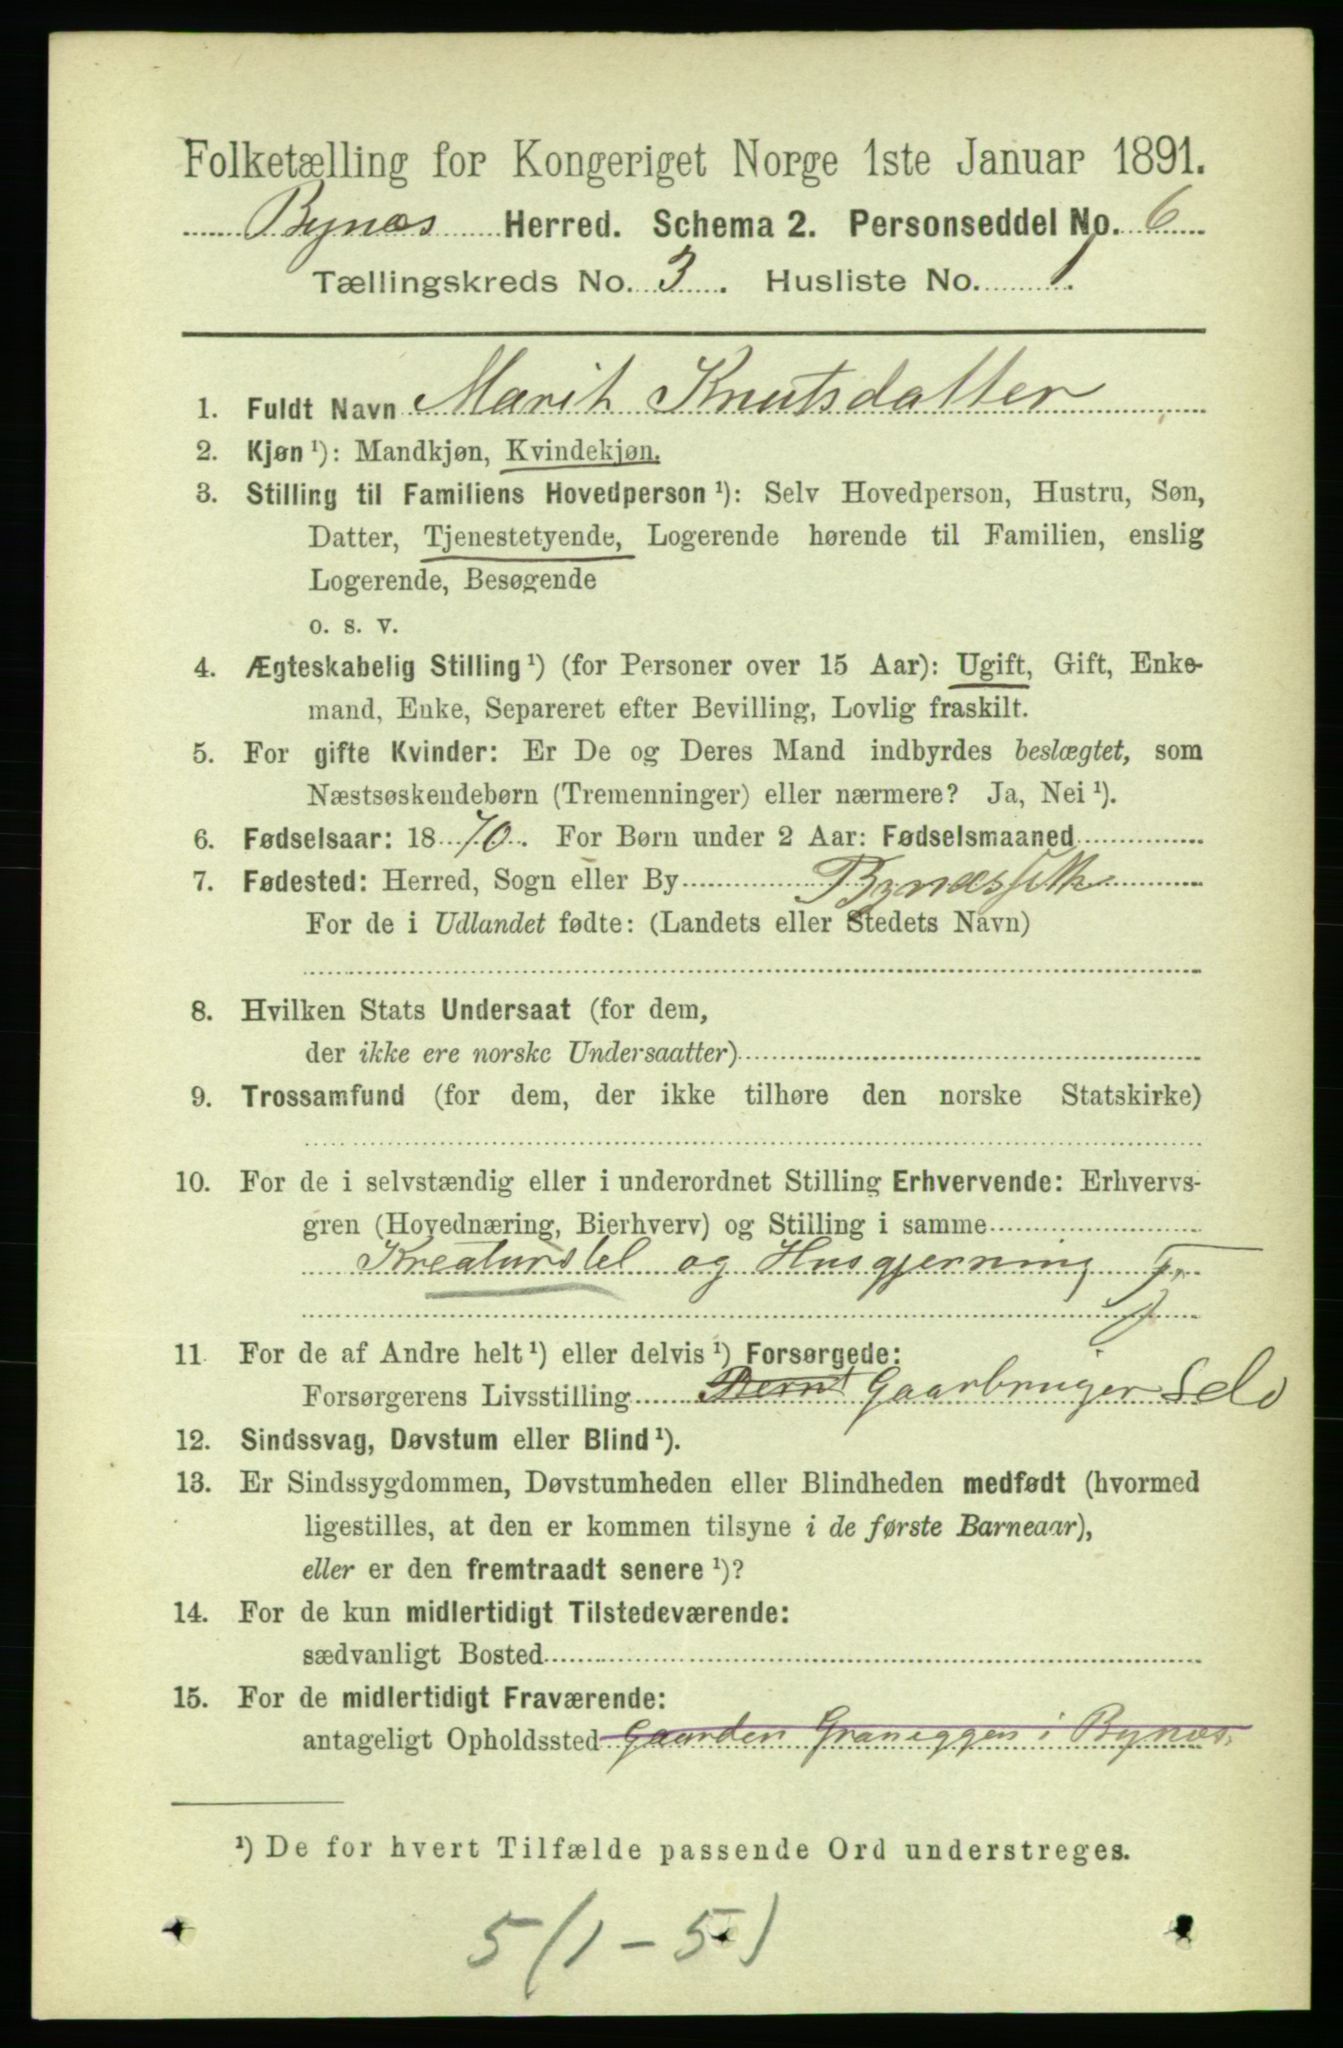 Folketælling for Kongeriget Norge 1ste Januar 1891.
Bynæs Herred. Schema 2. Personseddel No. 6
Tællingskreds No. 3. Husliste No. 1.
1. Fuldt Navn Marit Knutsdatter
2. Kjøn ¹): Mandkjøn, Kvindekjøn.
3. Stilling til Familiens Hovedperson ¹): Selv Hovedperson, Hustru, Søn,
Datter, Tjenestetyende, Logerende hørende til Familien, enslig
Logerende, Besøgende
o. s. v.
4. Ægteskabelig Stilling ¹) (for Personer over 15 Aar): Ugift, Gift, Enke-
mand, Enke, Separeret efter Bevilling, Lovlig fraskilt.
5. For gifte Kvinder: Er De og Deres Mand indbyrdes beslægtet, som
Næstsøskendebørn (Tremenninger) eller nærmere? Ja, Nei ¹).
6. Fødselsaar: 1870. For Børn under 2 Aar: Fødselsmaaned
7. Fødested: Herred, Sogn eller By Bynæsset
For de i Udlandet fødte: (Landets eller Stedets Navn)
8. Hvilken Stats Undersaat (for dem,
der ikke ere norske Undersaatter)
9. Trossamfund (for dem, der ikke tilhøre den norske Statskirke)
10. For de i selvstændig eller i underordnet Stilling Erhvervende: Erhvervs-
gren (Hovednæring, Bierhverv) og Stilling i samme
Kreaturstel og Husgjerning
11. For de af Andre helt ¹) eller delvis ¹) Forsørgede:
Forsørgerens Livsstilling Bernt Gaarbruger Selv
12. Sindssvag, Døvstum eller Blind ¹).
13. Er Sindssygdommen, Døvstumheden eller Blindheden medfødt (hvormed
ligestilles, at den er kommen tilsyne i de første Barneaar),
eller er den fremtraadt senere ¹)?
14. For de kun midlertidigt Tilstedeværende:
sædvanligt Bosted
15. For de midlertidigt Fraværende:
antageligt Opholdssted Gaarden Graneggen i Bynæs.
¹) De for hvert Tilfælde passende Ord understreges.
5(1-5)